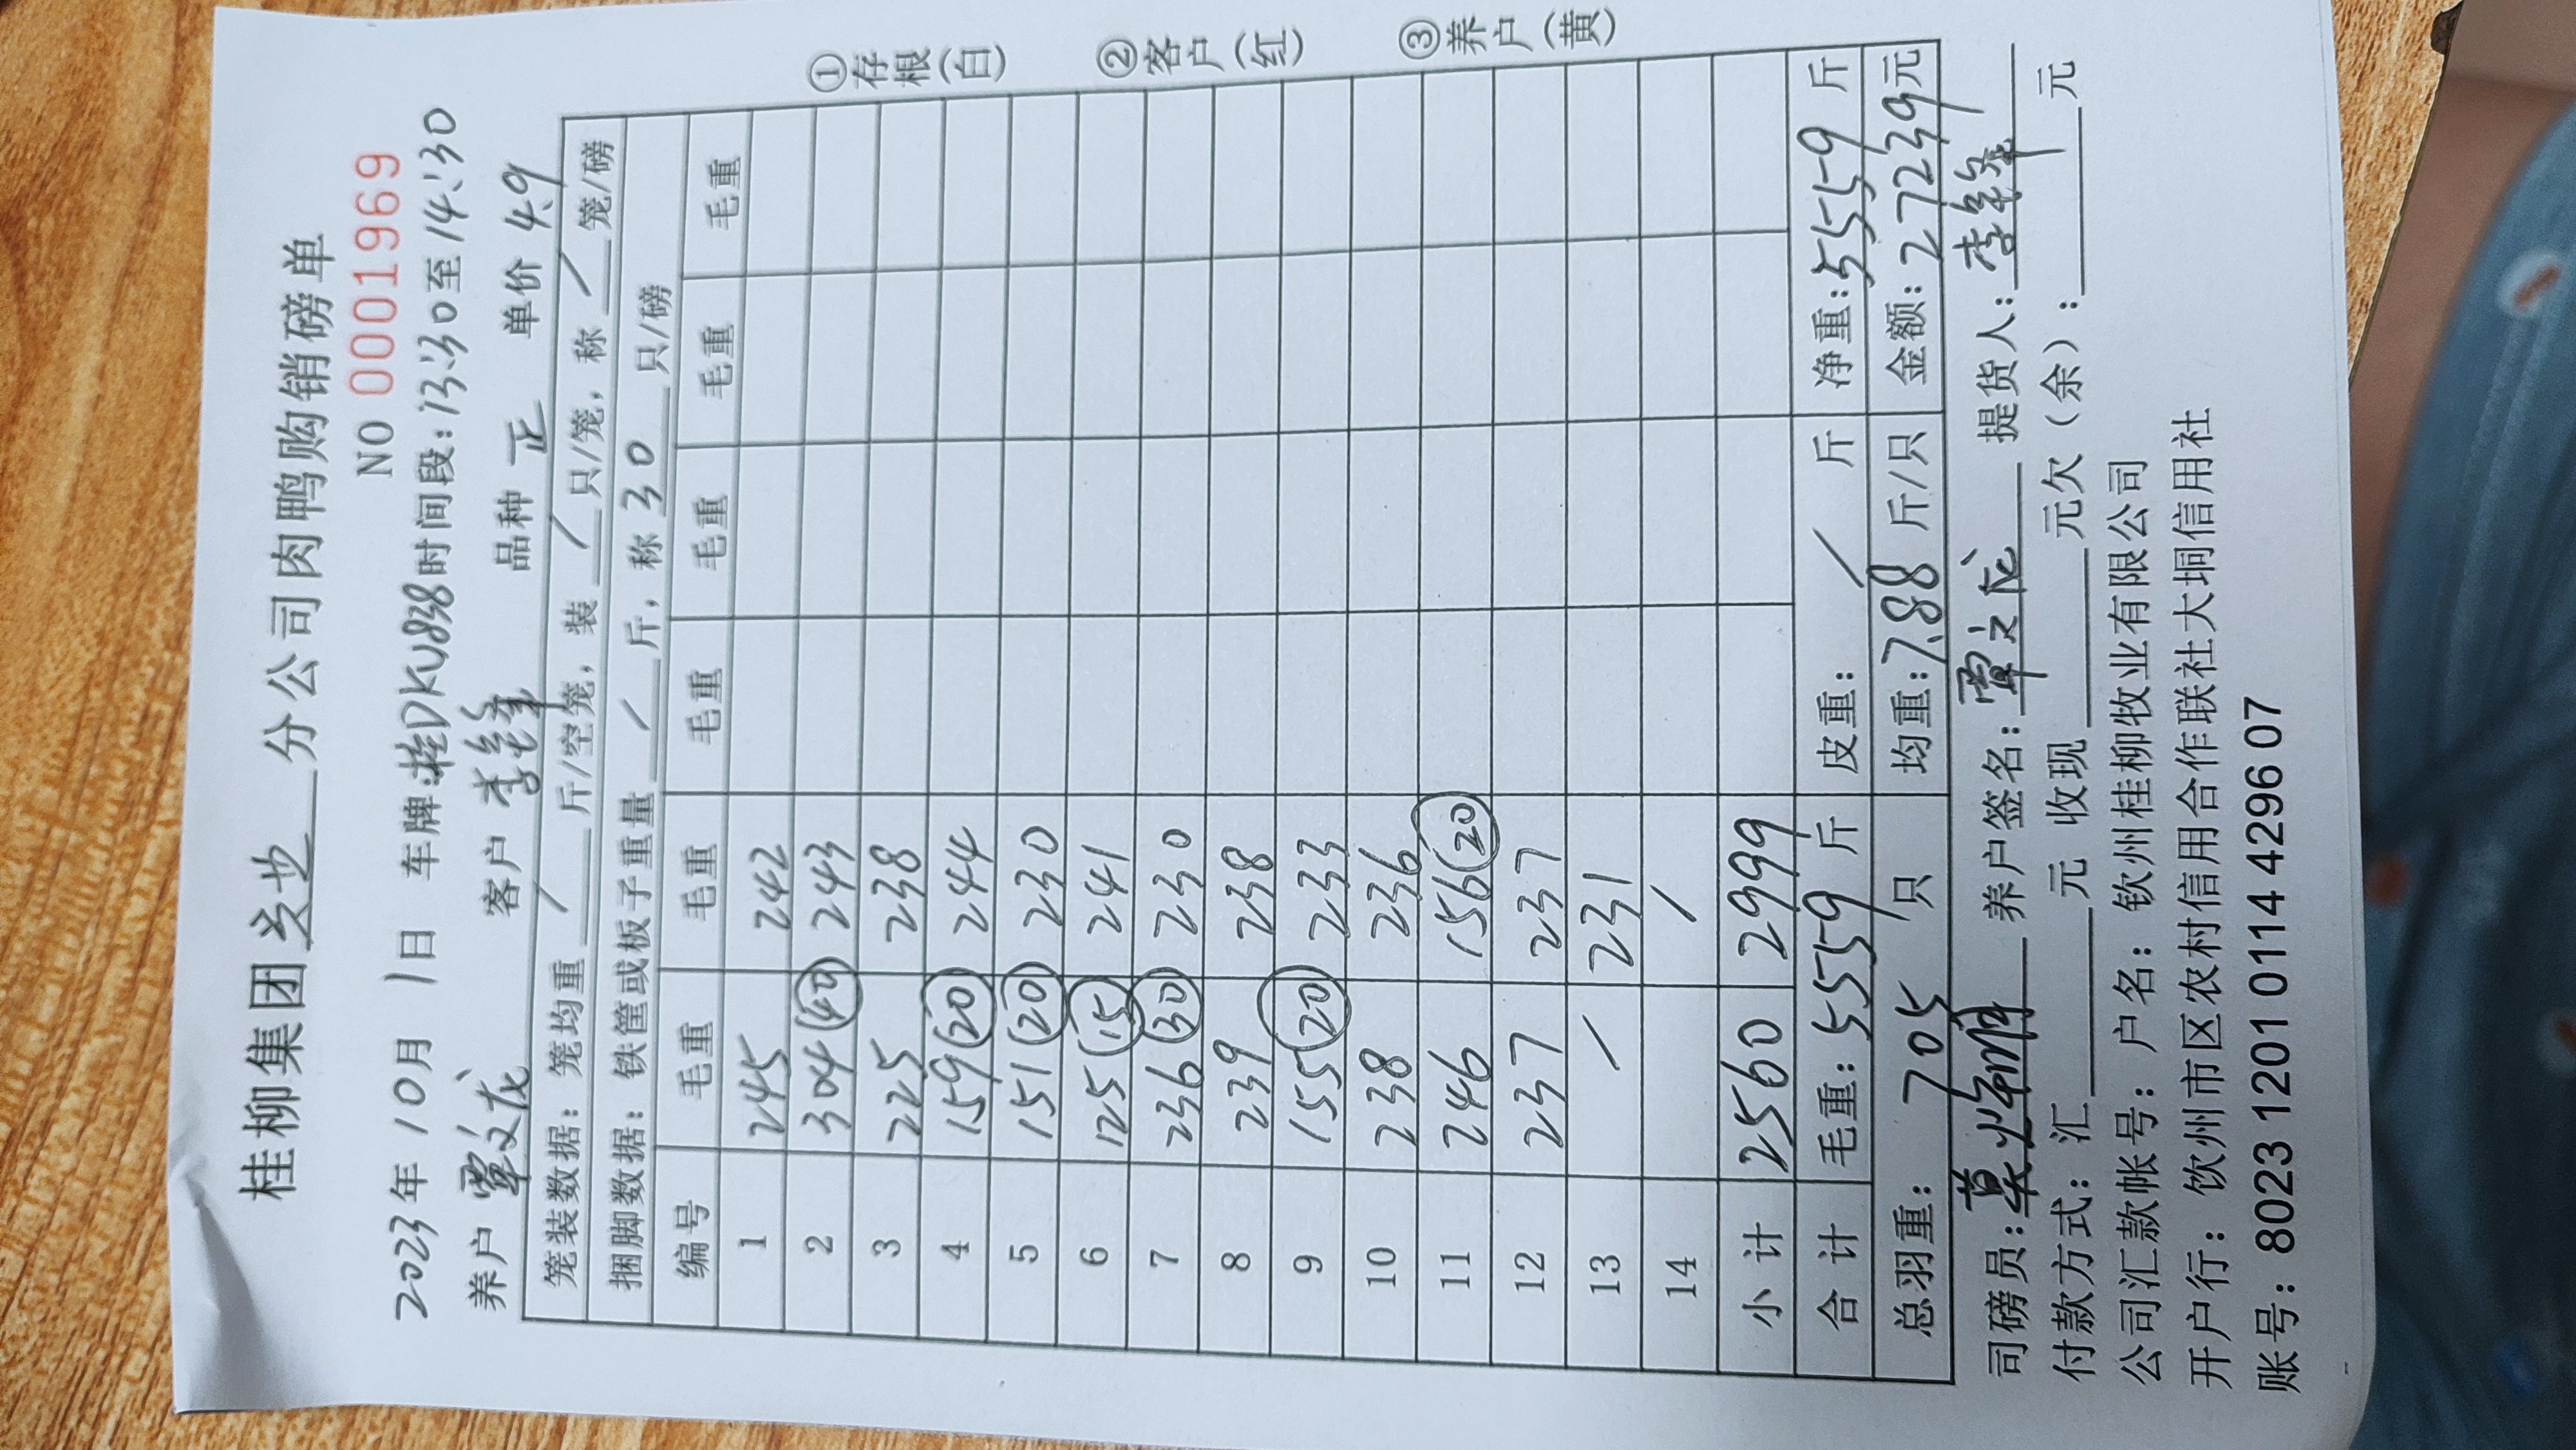 桂柳集团灵也分公司肉鸭购销磅单
NO 0001969
2023年10月1日 车牌:桂DKU838时间段:13:30至14:30
养户 覃文龙 客户 李锋 品种 正 单价 4.9
笼装数据: 笼均重 / 斤/空笼, 装 / 只/笼, 称 / 笼/磅
捆脚数据: 铁筐或板子重量 / 斤, 称 30 只/磅
编号 毛重 毛重 毛重 毛重 毛重 毛重
1 245 242
2 304 (40) 243
3 225 238
4 159 (20) 244
5 151 (20) 230
6 125 (15) 241
7 236 (30) 230
8 239 238
9 155 (20) 233
10 238 236
11 246 156 (20)
12 237 237
13 / 231
14 /
小计 2560 2999
合计 毛重: 5559 斤 皮重: / 斤 净重: 5559 斤
总羽重: 705 只 均重: 7.88 斤/只 金额: 27239元
司磅员: 莫 养户签名: 覃文龙 提货人: 李锋
付款方式: 汇 元 收现 元欠(余): 元
公司汇款帐号: 户名: 钦州桂柳牧业有限公司
开户行: 钦州市区农村信用合作联社大垌信用社
账号: 8023 1201 0114 4296 07
①存根(白)
②客户(红)
③养户(黄)